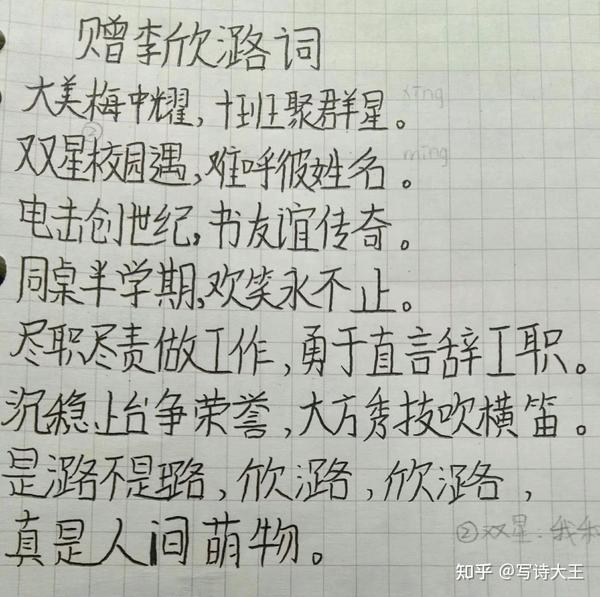 赠李欣潞词
大美梅中耀，十班聚群星。 xing
双星校园遇，难呼彼姓名。 ming
②
电击创世纪，书友谊传奇。
同桌半学期，欢笑永不止。
尽职尽责做工作，勇于直言辞工职。
沉稳上台争荣誉，大方秀技吹横笛。
是潞不是璐，欣潞，欣潞，
真是人间萌物。
②双星：我和
知乎 @写诗大王